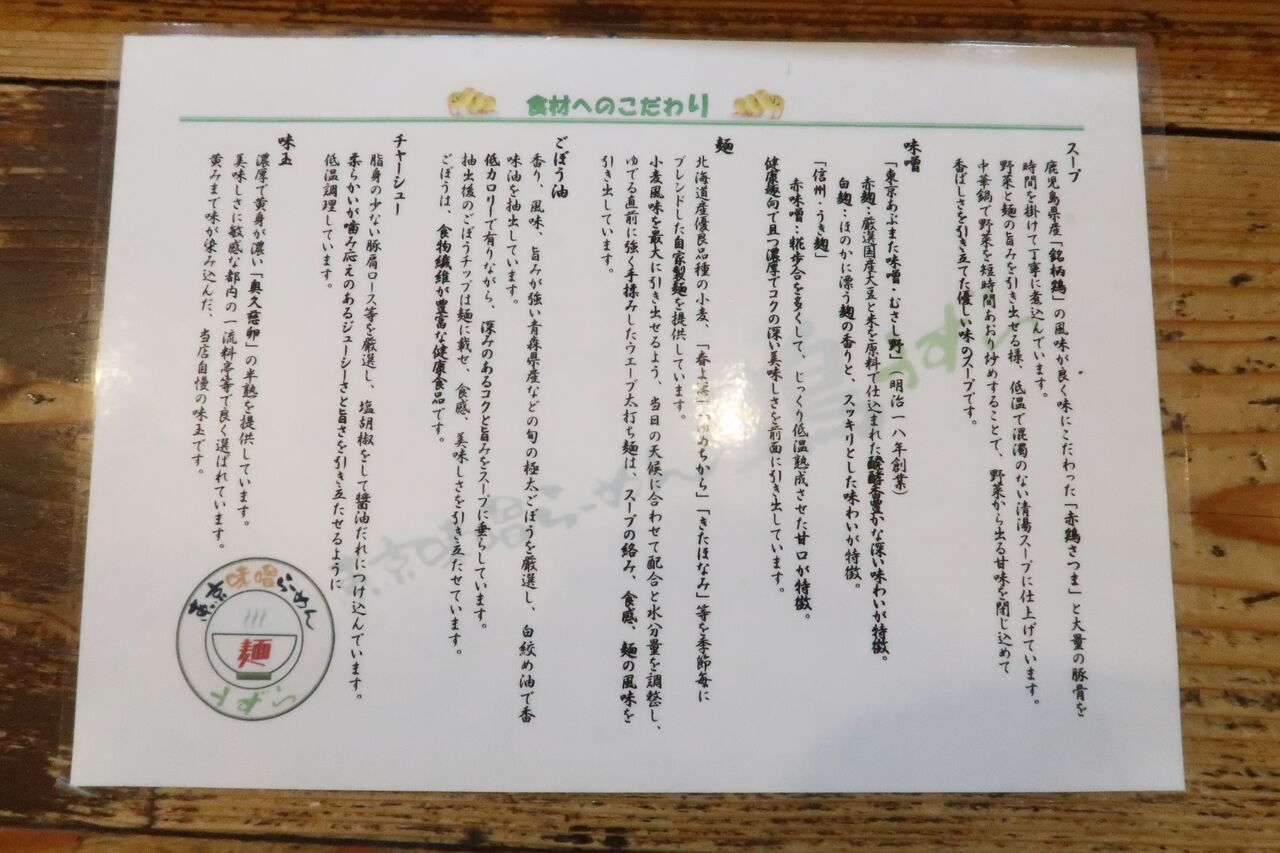 食材へのこだわり
スープ
鹿児島県産「銘柄鶏」の風味が良く味にこだわった「赤鶏さつま」と大量の豚骨を
時間を掛けて丁寧に煮込んでいます。
野菜と麺の旨みを引き出せる様、低温で混濁のない清湯スープに仕上げています。
中華鍋で野菜を短時間あおり炒めすることで、野菜から出る甘味を閉じ込めて
香ばしさを引き立てた優しい味のスープです。
味噌
「東京あぶまた味噌・むさし野」(明治一八年創業)
赤麹:厳選国産大豆と米を原料で仕込まれた醗酵香豊かな深い味わいが特徴。
白麹:ほのかに漂う麹の香りと、スッキリとした味わいが特徴。
「信州・うき麹」
赤味噌・糀歩合を多くして、じっくり低温熟成させた甘口が特徴。
健康趣向で且つ濃厚でコクの深い美味しさを前面に引き出しています。
麺
北海道産優良品種の小麦、「春よ恋」「ゆめちから」「きたほなみ」等を季節毎に
ブレンドした自家製麺を提供しています。
小麦風味を最大に引き出せるよう、当日の天候に合わせて配合と水分量を調整し、
ゆでる直前に強く手揉みしたウエーブ太打ち麺は、スープの絡み、食感、麺の風味を
引き出しています。
ごぼう油
香り、風味、旨みが強い青森県産などの旬の極太ごぼうを厳選し、白絞め油で香
味油を抽出しています。
低カロリーで有りながら、深みのあるコクと旨みをスープに垂らしています。
抽出後のごぼうチップは麺に載せ、食感、美味しさを引き立たせています。
ごぼうは、食物繊維が豊富な健康食品です。
チャーシュー
脂身の少ない豚肩ロース等を厳選し、塩胡椒をして醤油だれにつけ込んでいます。
柔らかいが噛み応えのあるジューシーさと旨さを引き立たせるように
低温調理しています。
味玉
濃厚で黄身が濃い「奥久慈卵」の半熟を提供しています。
美味しさに敏感な都内の一流料亭等で良く選ばれています。
黄みまで味が染み込んだ、当店自慢の味玉です。
東京味噌らーめん
麺